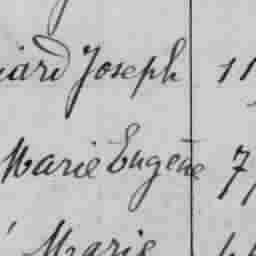 iard Joseph 11
Marie Eugène 7
Marie